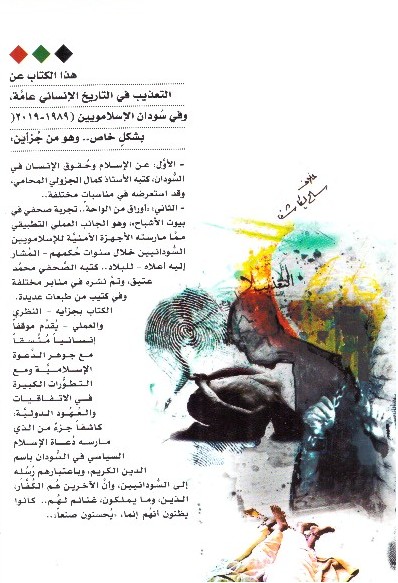 هذا الكتاب عن
التعذيب في التاريخ الإنساني عامّة،
وفي سُودان الإسلامويين (١٩٨٩-٢٠١٩(
بشكلٍ خاص.. وهو من جُزأين؛
- الأوّل: عن الإسلام وحُقوق الإنسان في
السُّودان، كتبه الأستاذ كمال الجزولي المحامي،
وقد استعرضه في مناسبات مختلفة..
- الثاني: «أوراق من الواحة.. تجربة صحفي في
بيوت الأشباح»، وهو الجانب العملي التطبيقي
ممّا مارسته الأجهزة الأمنيَّة للإسلامويين
السُّودانيين خلال سنوات حُكمهم - المُشار
إليه أعلاه - للبلاد.. كتبه الصُّحفي محمَّد
عتيق، وتمَّ نشره في منابر مختلفة
وفي كتيب من طبعات عديدة.
الكتاب بجزأيه - النظري
والعملي - يقدِّم موقفاً
إنسانياً مُتَّسقاً
مع جوهر الدَّعوة
الإسلاميَّة ومع
التطوُّرات الكبيرة
في الاتفاقيات
والعُهود الدوليَّة؛
كاشفاً جزءً من الذي
مارسه دُعاة الإسلام
السياسي في السُّودان باسم
الدين الكريم، وباعتبارهم رُسُله
إلى السُّودانيين، وأنَّ الآخرين هُم الكُفَّار،
الذين، وما يملكون، غنائم لهُم.. كانوا
يظنون أنَّهم إنَّما، «يُحسنون صنعاً»..